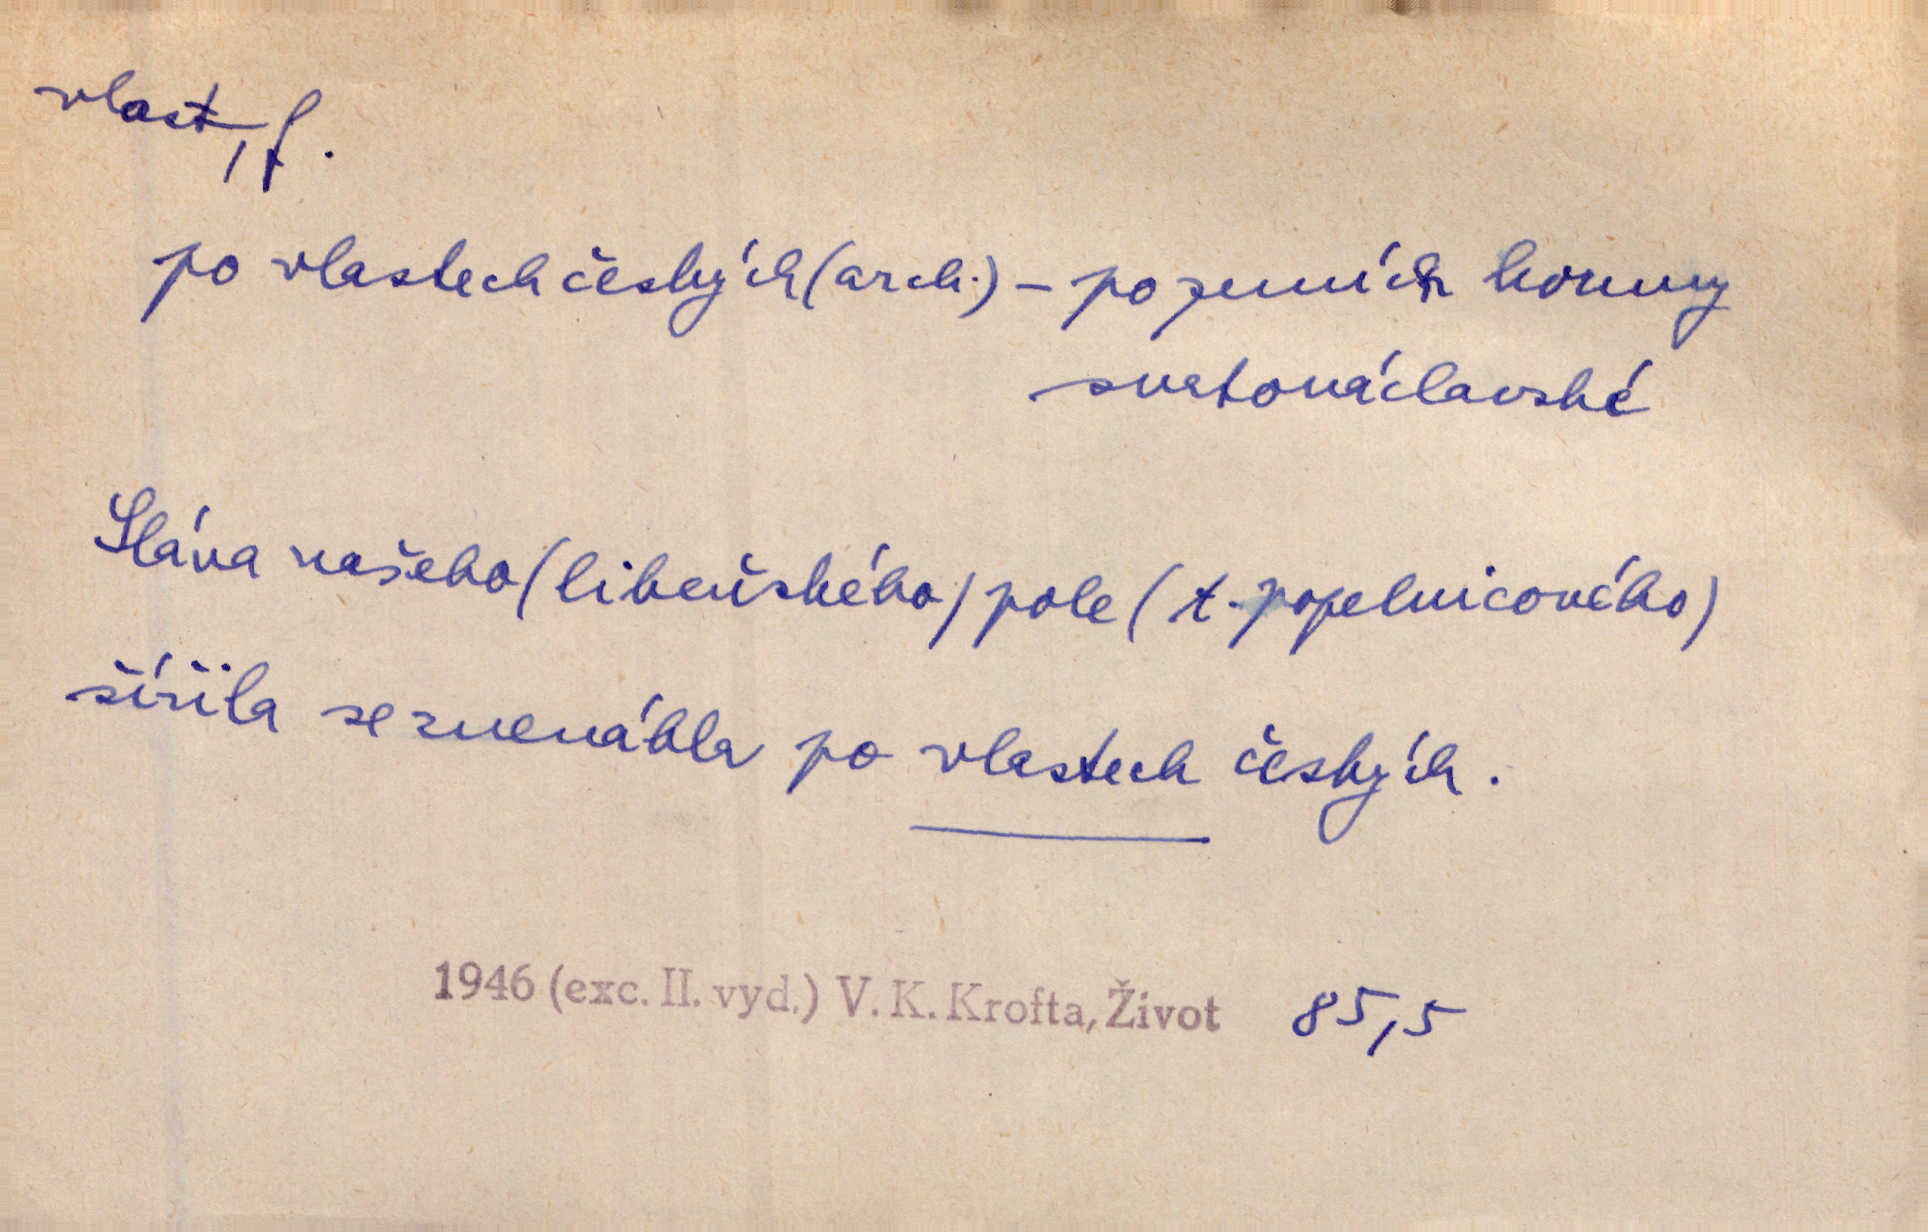 vlast, f.
po vlastech českých (arch.) - po zemích koruny
svatováclavské
Sláva našeho (libeňského) pole (t. popelnicového)
šířila se znenáhla po vlastech českých.
1946 (exc. II. vyd.) V. K. Krofta, Život 85,5